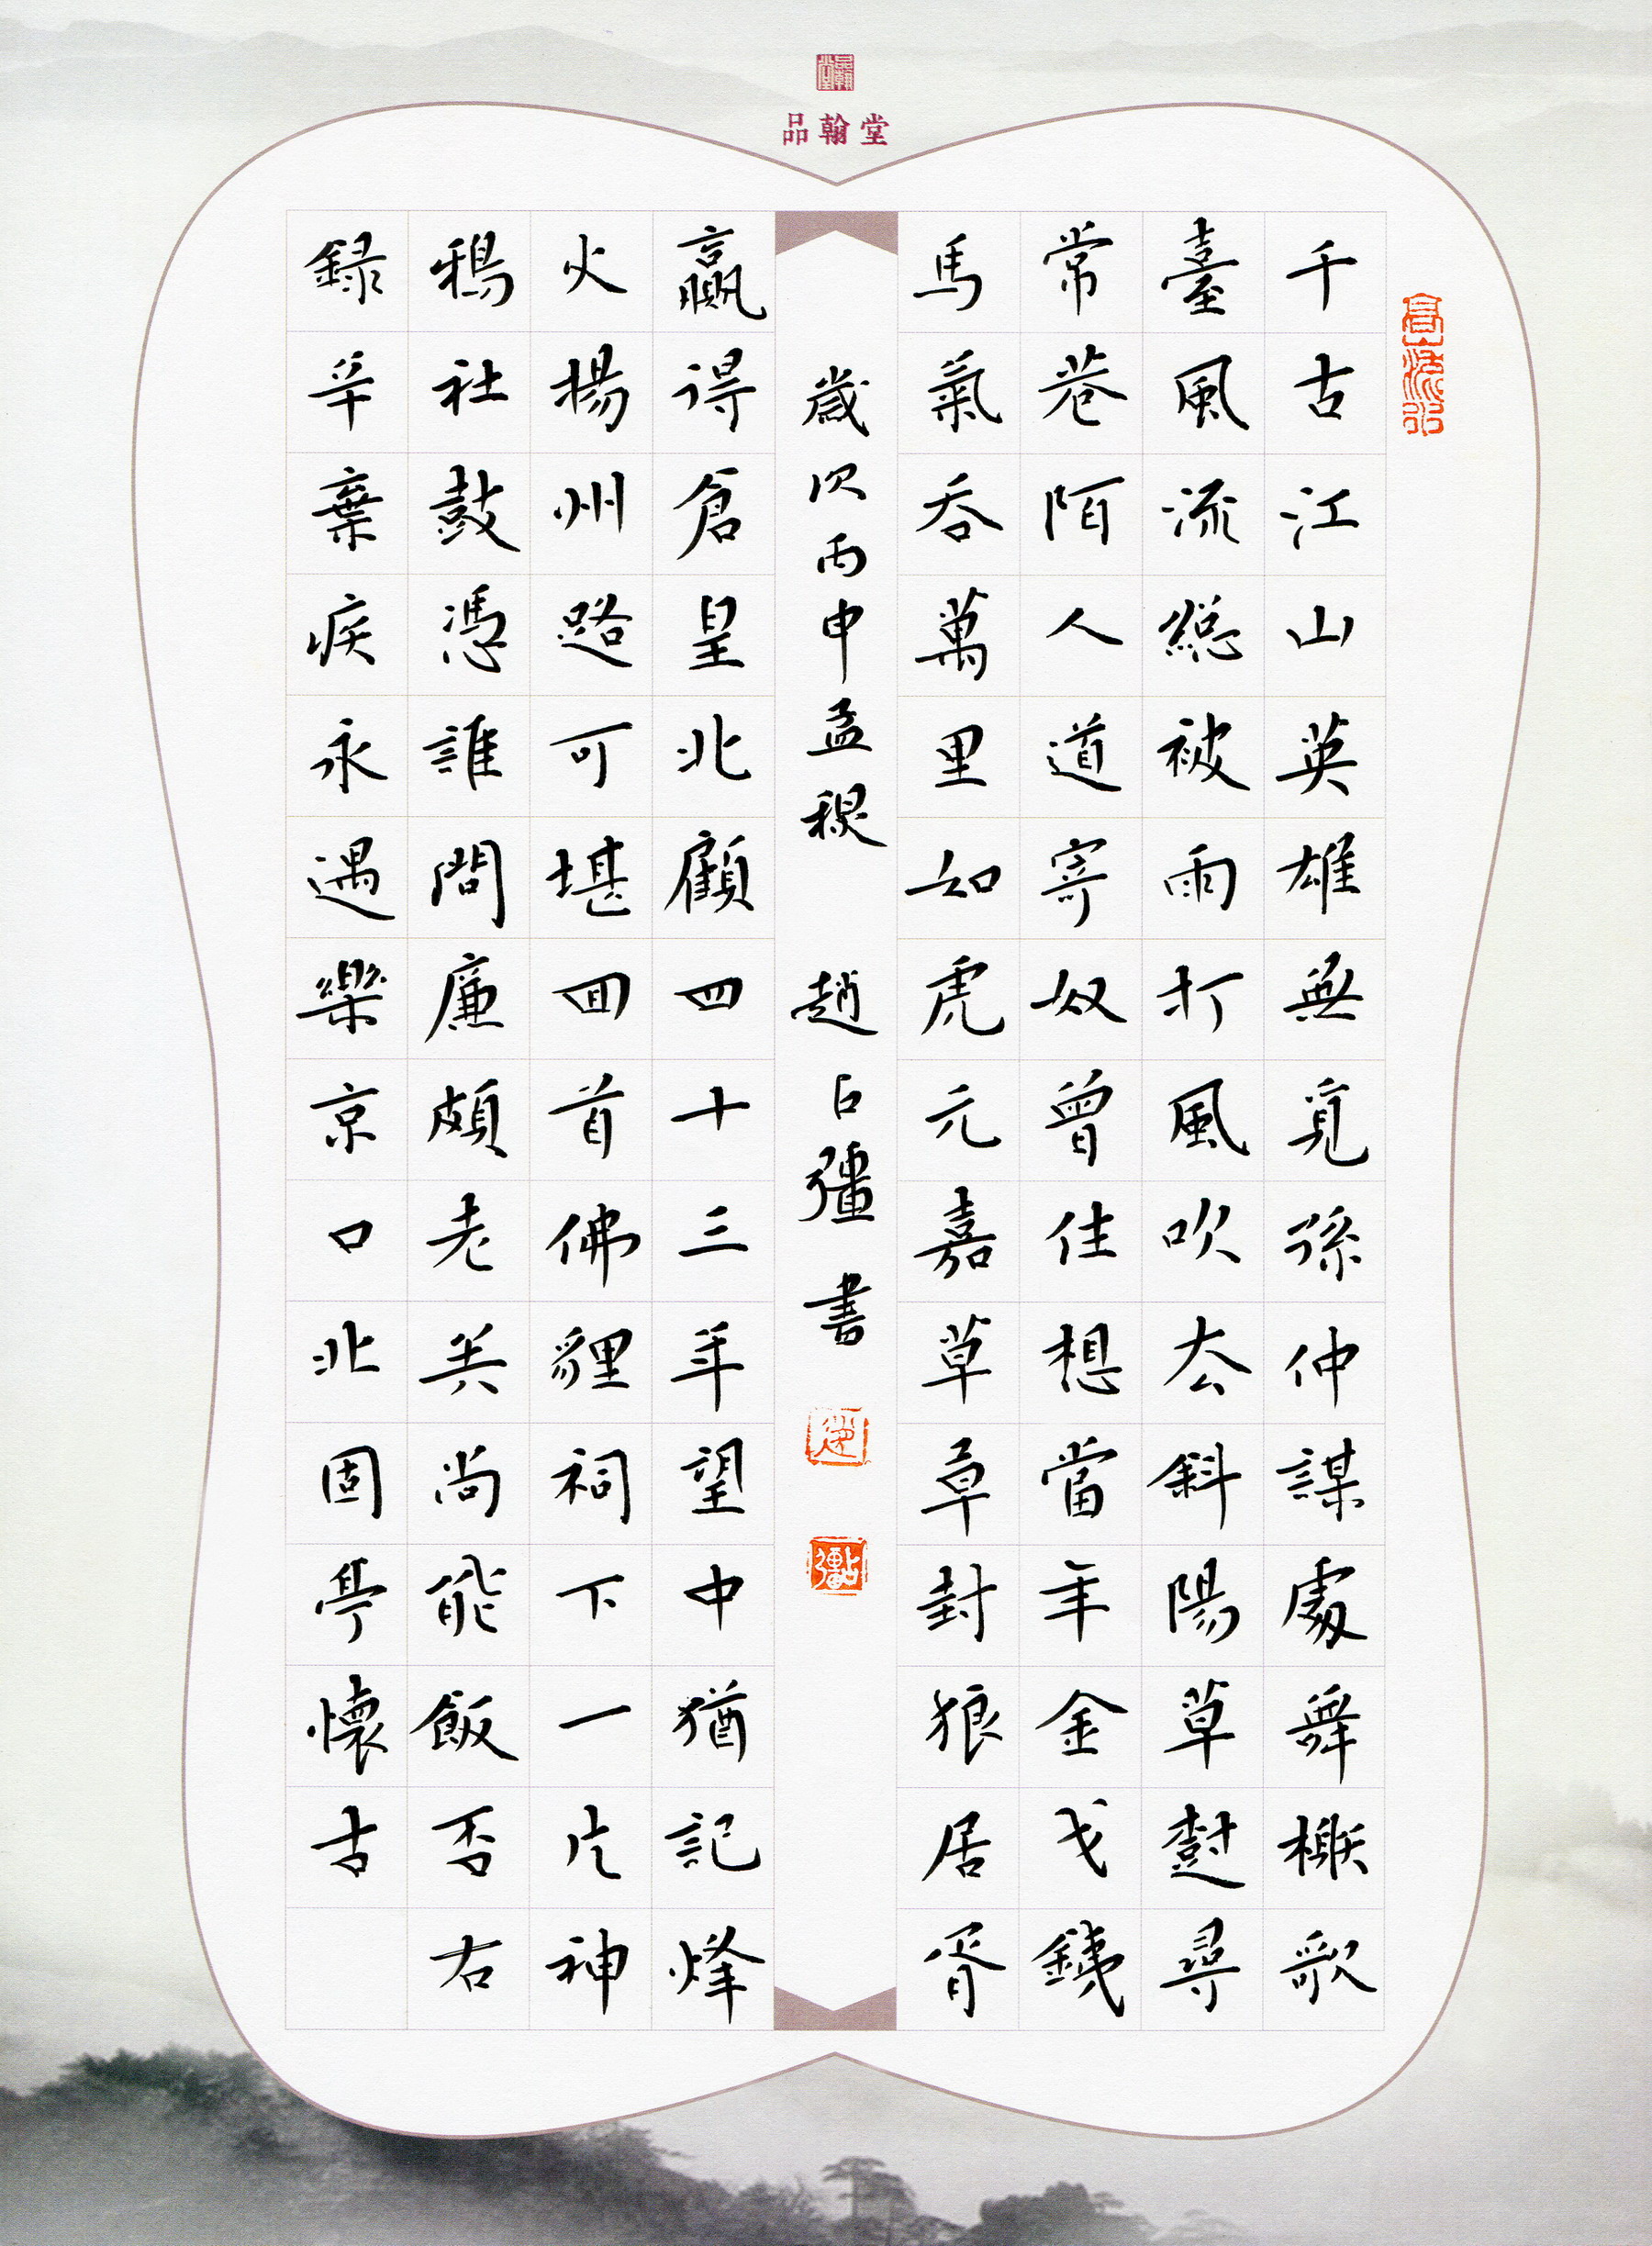 品翰堂
高山流水
千古江山英雄無覓孫仲謀處舞榭歌
臺風流總被雨打風吹去斜陽草樹尋
常巷陌人道寄奴曾住想當年金戈鐵
馬氣吞萬里如虎元嘉草草封狼居胥
贏得倉皇北顧四十三年望中猶記烽
火揚州路可堪回首佛貍祠下一片神
鴉社鼓憑誰問廉頗老矣尚能飯否右
錄辛棄疾永遇樂京口北固亭懷古
歲次丙申孟秋 趙占彊書